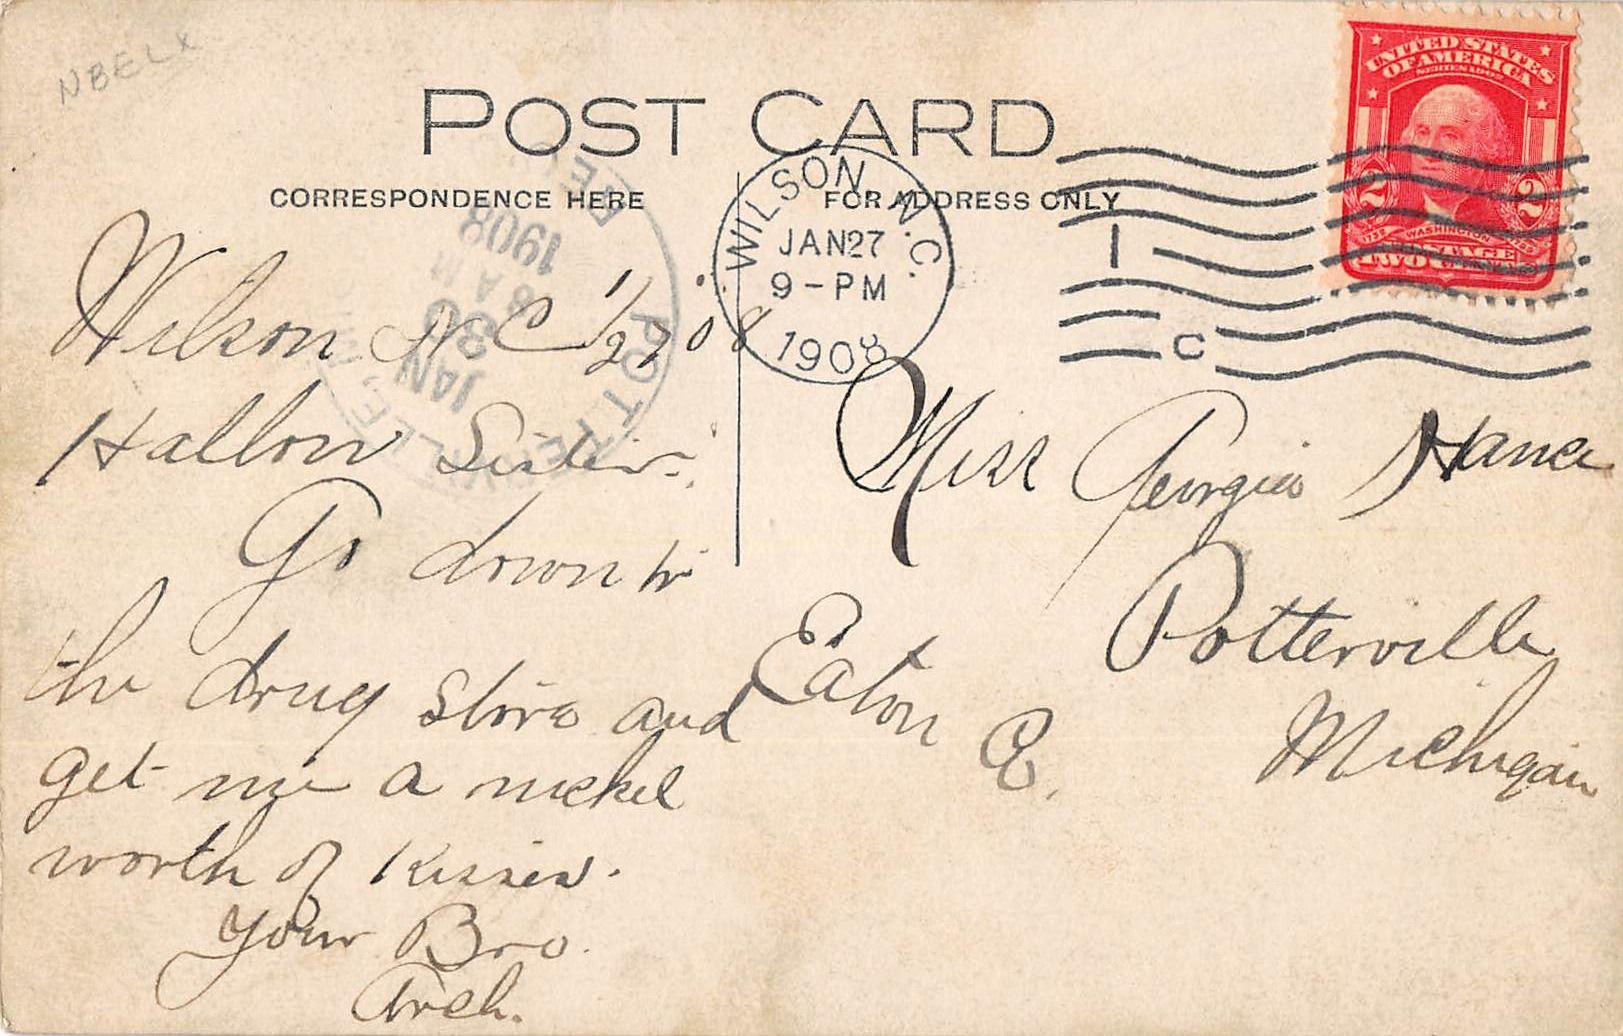 NBELX
POST CARD
CORRESPONDENCE HERE
FOR ADDRESS ONLY
UNITED STATES
OF AMERICA
SERIES 1902
2 2
1732 WASHINGTON 1799
TWO CENTS
WILSON, N.C.
JAN 27
9-PM
1908
1
C
POTTERVILLE
JAN
30
8 AM
1908
REC'D
Wilson N C 1/27 08
Hallow Sister:
Go down to
the drug store and
get me a nickel
worth of Kisses.
Your Bro.
Arch.
Miss Georgia Hance
Potterville
Eaton Co.
Michigan